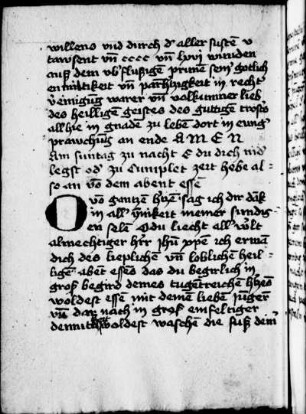 willens vnd durch d' aller susten v
tawsent vn̄ cccc vn̄ lxvj wunden
auß dem vb'flußigen prunē seiner gotlich
en mitikeit vn̄ parmhtzigkeit in recht
v'einigūg warer vn̄ volkumner lieb
des heiligen geistes des guttigen trosts
allhie in gnade zu lebē dort in ewig'
prawchūg an ende A M E N
Am suntag zu nacht E du dich nid'
legst od' zu Complet zeit hebe al-
so an vō dem abent esse
Vō gantzem h'tzē sag ich dir dāk
in all' Inikeit meiner sundig
en sele O du liecht all' w'lt
almechtiger h'r jhū xp̄e ich ermā
dich des lieplichē vn̄ loblichē heil-
ligē abēt essēs das du begirlich in
groß begird deines tugentreichē h'tzēs
woldest essē mit deinē liebē jūger
vn̄ dar nach in groß einfeltiger
demut woldest waschē die fuß dein